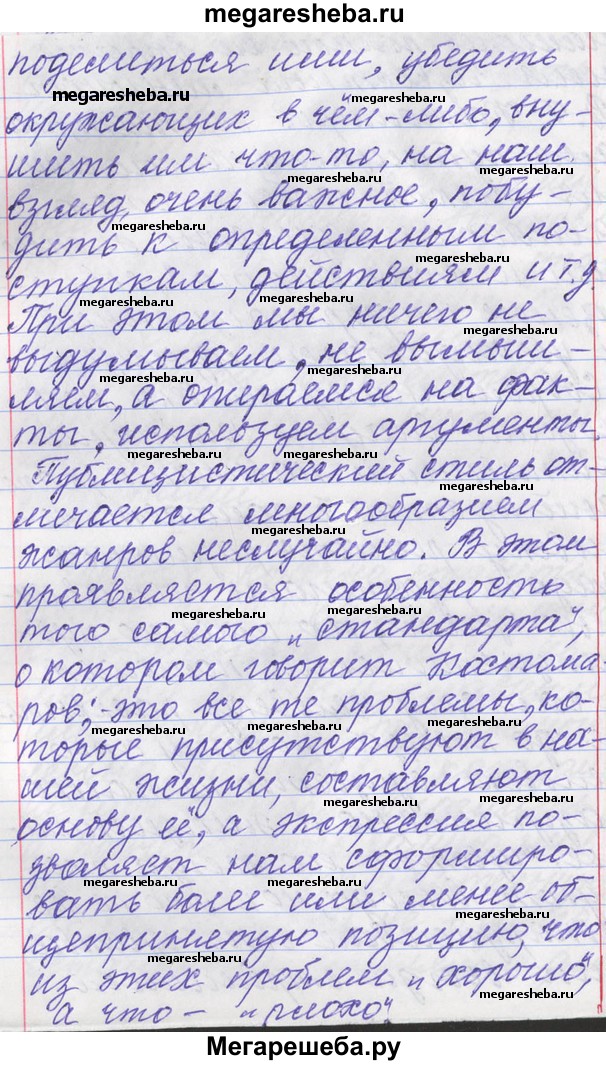 megaresheba.ru
поделиться ими, убедить
окружающих в чём-либо, вну-
шить им что-то, на наш
взгляд, очень важное, побу-
дить к определенным по-
ступкам, действиям и т.д.
При этом мы ничего не
выдумываем, не вымыш-
ляем, а опираемся на фак-
ты, используем аргументы.
Публицистический стиль от-
личается многообразием
жанров неслучайно. В этом
проявляется особенность
того самого „стандарта",
о котором говорит Костома-
ров; - это все те проблемы, ко-
торые присутствуют в на-
шей жизни, составляют
основу её, а экспрессия по-
зволяет нам сформиро-
вать более или менее об-
щепринятую позицию, что
из этих проблем „хорошо",
а что - „плохо".
Мегарешеба.ру